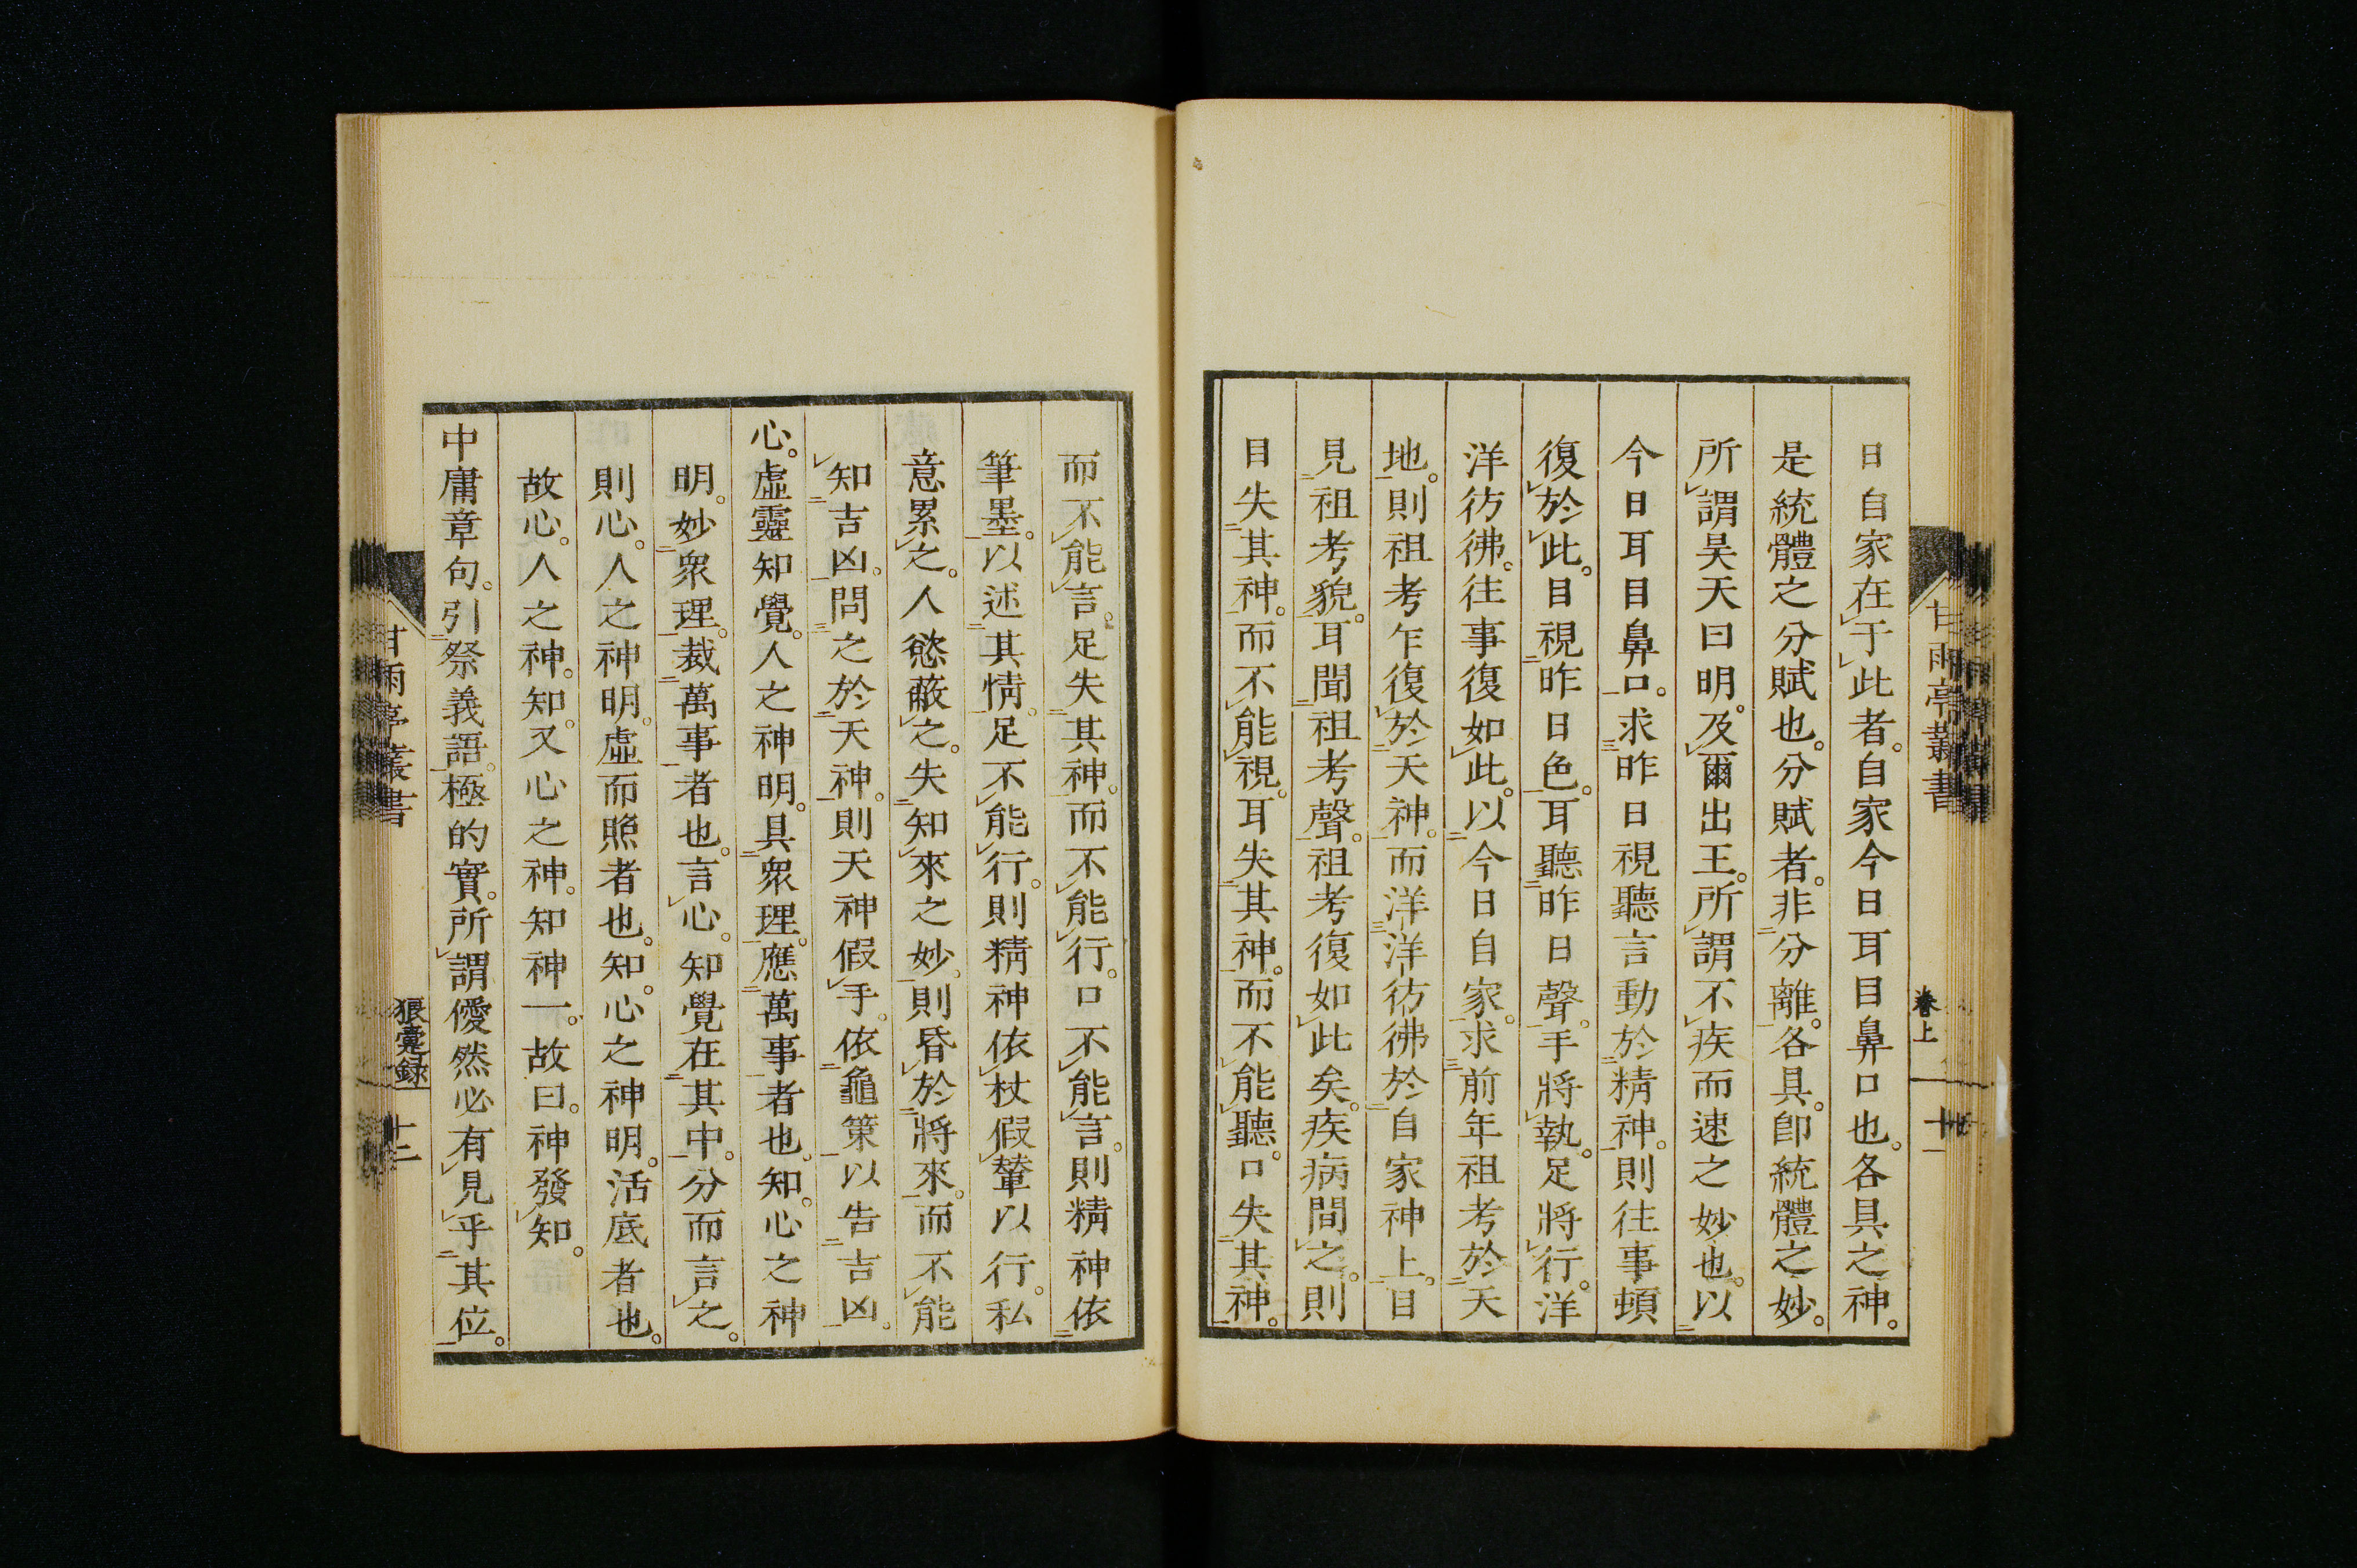 日自家在于此者。自家今日耳目鼻口也。各具之神。
是統體之分賦也。分賦者。非分離。各具。卽統體之妙。
所謂昊天曰明。及爾出王。所謂不疾而速之妙也。以
今日耳目鼻口。求昨日視聽言動於精神。則往事頓
復於此。目視昨日色。耳聽昨日聲。手將執。足將行。洋
洋彷彿。往事復如此。以今日自家。求前年祖考於天
地。則祖考乍復於天神。而洋洋彷彿於自家神上。目
見祖考貌。耳聞祖考聲。祖考復如此矣。疾病間之。則
目失其神。而不能視。耳失其神。而不能聽。口失其神。
甘雨亭叢書
卷上
十一
而不能言。足失其神。而不能行。口不能言。則精神依
筆墨。以述其情。足不能行。則精神依杖假輦以行。私
意累之。人慾蔽之。失知來之妙。則昏於將來。而不能
知吉凶。問之於天神。則天神假手。依龜策以告吉凶。
心。虛靈知覺。人之神明。具衆理。應萬事者也。知。心之神
明。妙衆理。裁萬事者也。言心。知覺在其中。分而言之。
則心。人之神明。虛而照者也。知。心之神明。活底者也。
故心。人之神。知。又心之神。知神一。故曰。神發知。
中庸章句。引祭義語。極的實。所謂僾然必有見乎其位。
甘雨亭叢書
狼疐録
十二